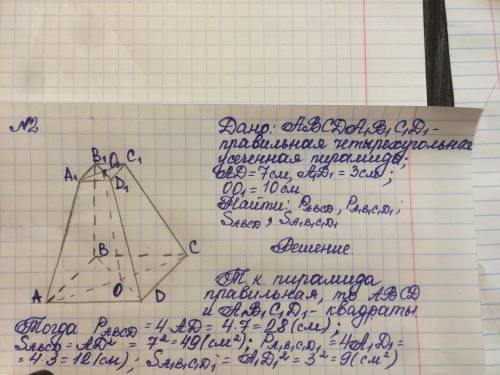 №2
Дано: ABCDA₁B₁C₁D₁ -
правильная четырехугольная
усеченная пирамида;
AD = 7см, A₁D₁ = 3см;
OO₁ = 10см
Найти: P_ABCD, P_A₁B₁C₁D₁;
S_ABCD, S_A₁B₁C₁D₁
Решение
B₁ O₁ C₁
A₁ D₁
B C
A O D
Т.к. пирамида
правильная, то ABCD
и A₁B₁C₁D₁ - квадраты
Тогда P_ABCD = 4AD = 4·7 = 28(см);
S_ABCD = AD² = 7² = 49(см²); P_A₁B₁C₁D₁ = 4A₁D₁ =
= 4·3 = 12(см); S_A₁B₁C₁D₁ = A₁D₁² = 3² = 9(см²)